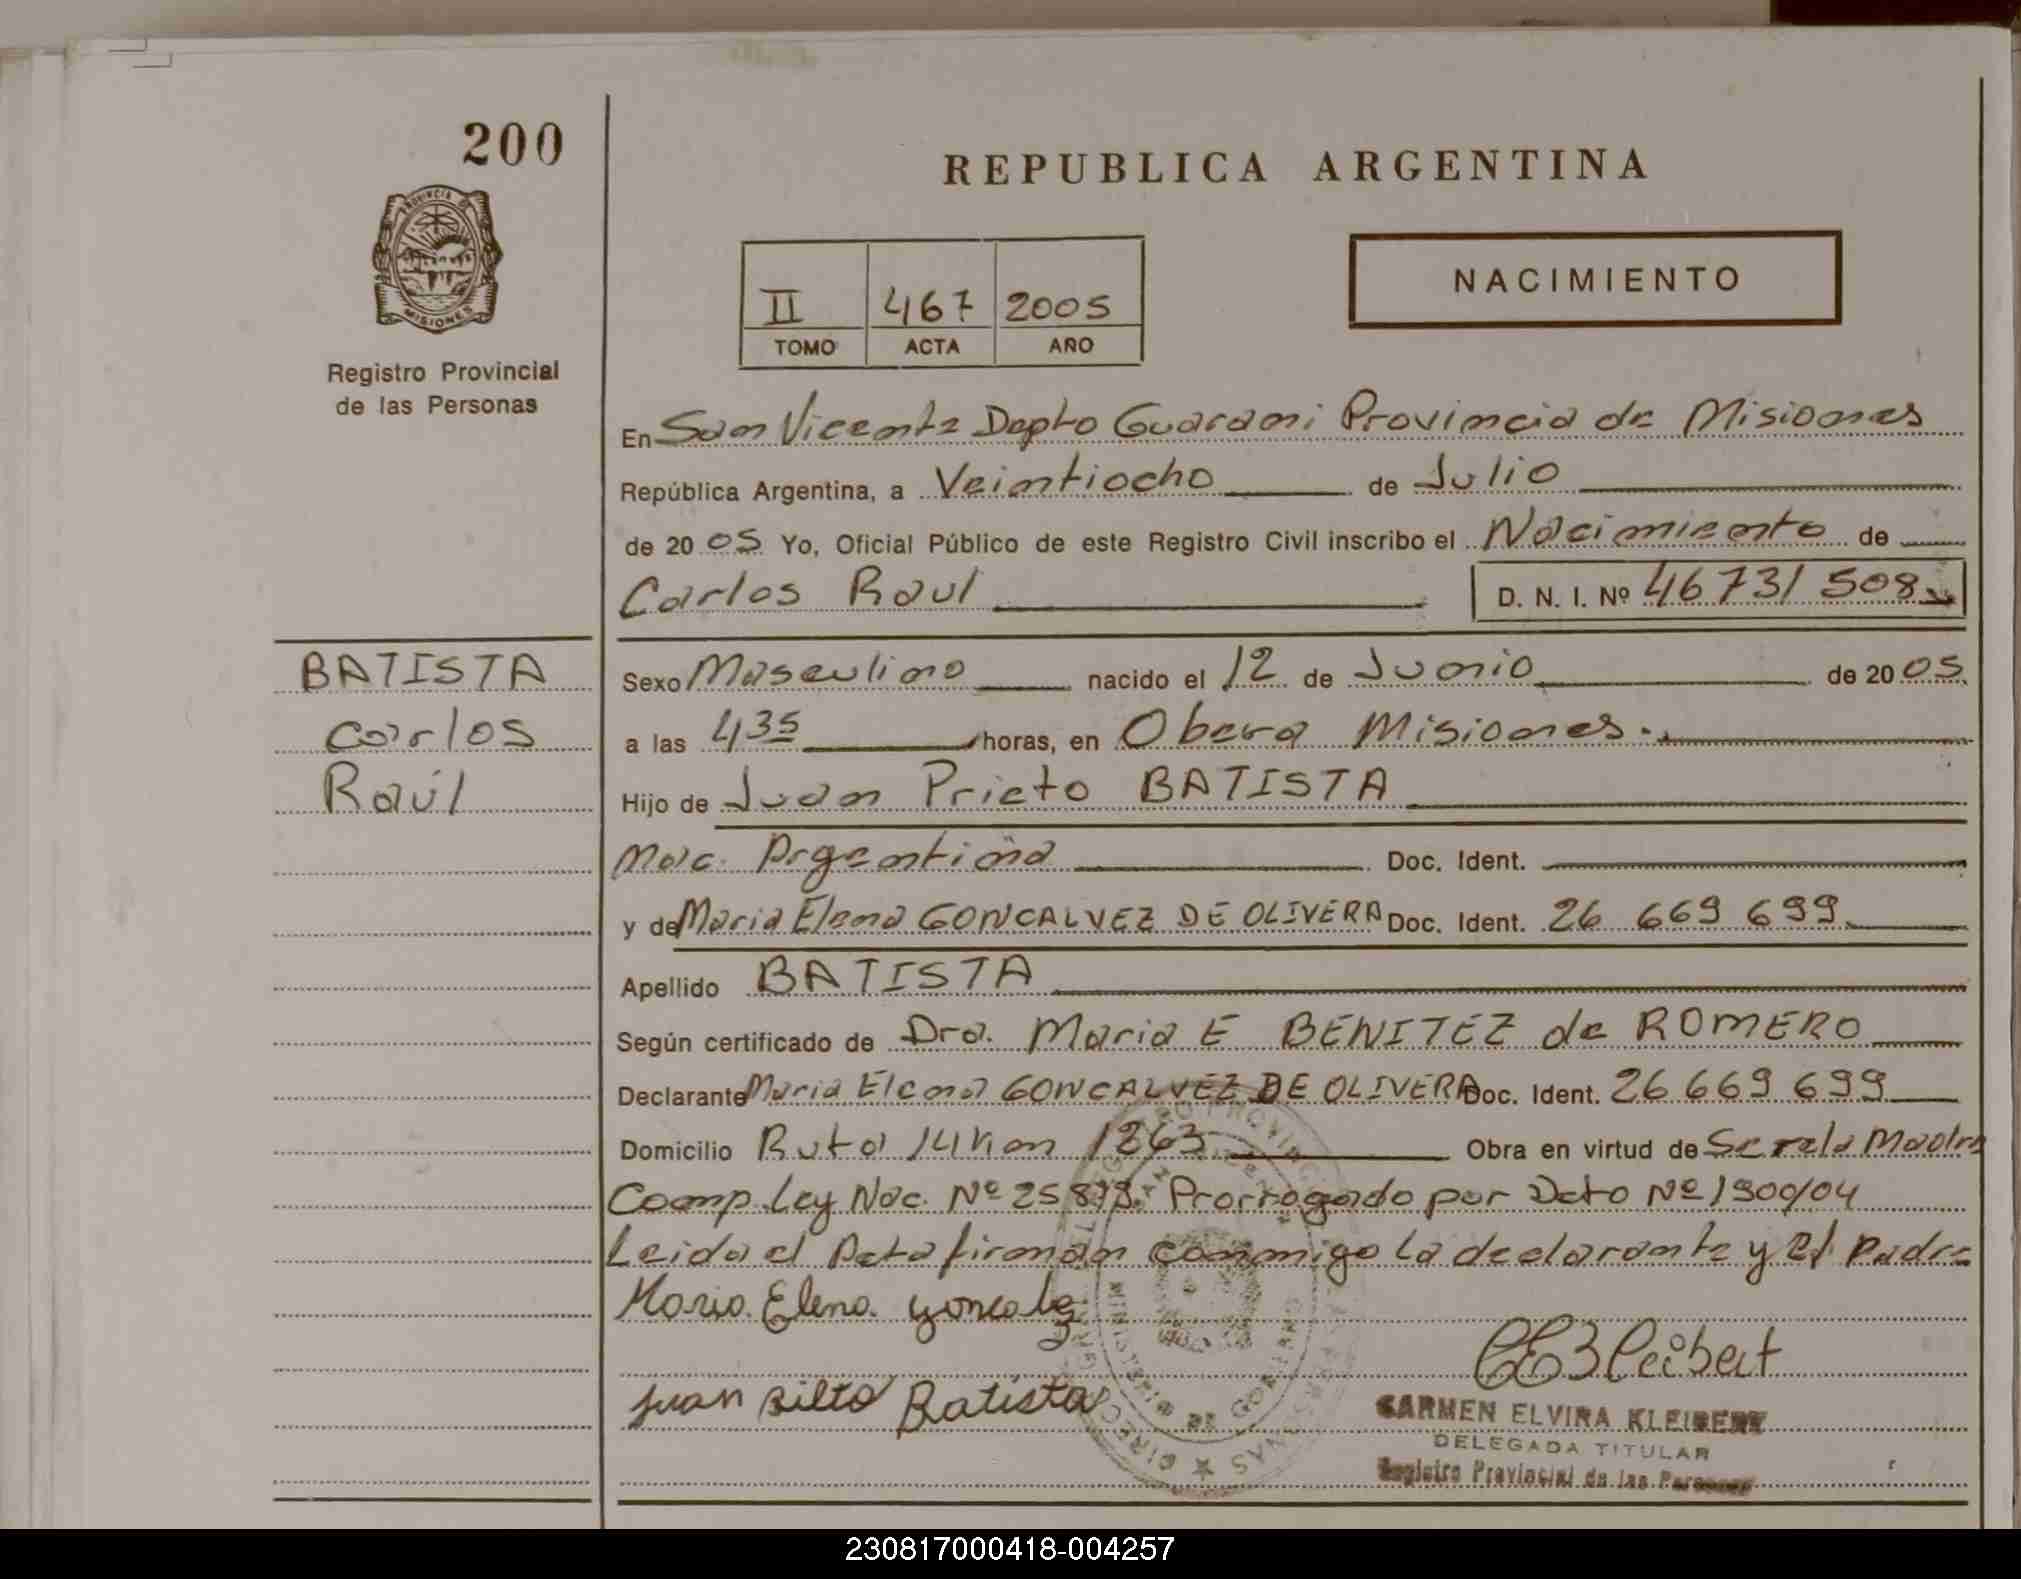 200
PROVINCIA DE
MISIONES
Registro Provincial
de las Personas
REPUBLICA ARGENTINA
II 467 2005
TOMO ACTA AÑO
NACIMIENTO
En San Vicente Depto Guarani Provincia de Misiones
República Argentina, a Veintiocho de Julio
de 20 05 Yo, Oficial Público de este Registro Civil inscribo el Nacimiento de
Carlos Raul D. N. I. Nº 46 731 508
BATISTA
Carlos
Raúl
Sexo Masculino nacido el 12 de Junio de 20 05
a las 4 35 horas, en Obera Misiones.
Hijo de Juan Prieto BATISTA
Nac. Argentina Doc. Ident.
y de Maria Elena GONCALVEZ DE OLIVERA Doc. Ident. 26 669 699
Apellido BATISTA
Según certificado de Dra. Maria E BENITEZ de ROMERO
Declarante Maria Elena GONCALVEZ DE OLIVERA Doc. Ident. 26 669 699
Domicilio Ruta 14 km 1263 Obra en virtud de Ser la Madre
Comp. Ley Nac. Nº 25 819 Prorrogado por Dcto Nº 1900/04
Leida el Acta firman conmigo la declarante y el Padre
Maria Elena
Juan Batista
CARMEN ELVIRA KLEIBERT
DELEGADA TITULAR
Registro Provincial de las Personas
MINISTERIO DE GOBIERNO
230817000418-004257